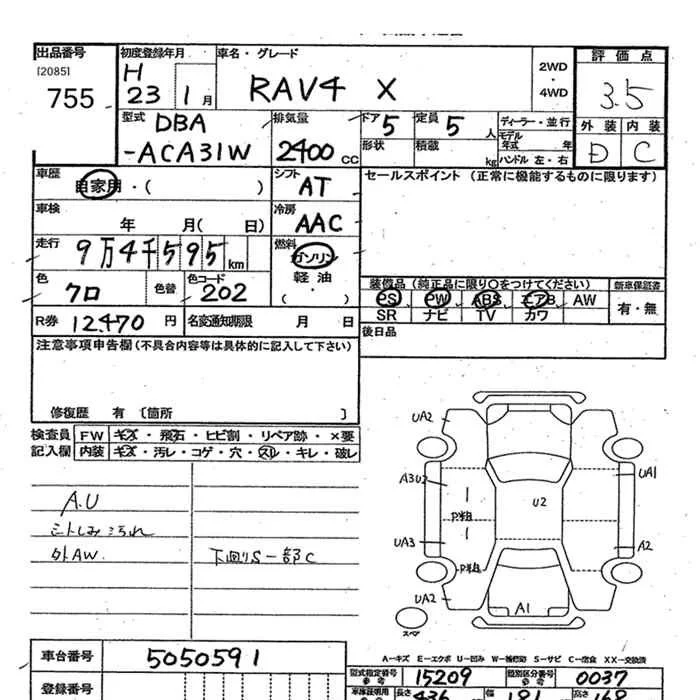 出品番号
[2085]
755
初度登録年月
H
23 1 月
車名・グレード
RAV4 X
2WD
・
4WD
評価点
3.5
外装 内装
D C
型式
DBA
-ACA31W
排気量
2400 CC
ドア 5
定員 5 人
形状
積載 kg
ディーラー・並行
モデル
年式 年
ハンドル 左・右
車歴
自家用・( )
シフト
AT
セールスポイント (正常に機能するものに限ります)
車検
年 月( 日)
冷房
AAC
走行
9万4千595 km
燃料
ガソリン
軽油
( ・ )
色
クロ
色替
色コード
202
装備品 (純正品に限り○をつけてください)
新車保証書
PS PW ABS エアB AW
SR ナビ TV カワ
有・無
R券 12470 円
名変通知期限 月 日
後日品
注意事項申告欄 (不具合内容等は具体的に記入して下さい)
修復歴 有 [箇所 ]
検査員
記入欄
FW キズ・飛石・ヒビ割・リペア跡・×要
内装 キズ・汚レ・コゲ・穴・スレ・キレ・破レ
A.U
シトしみ汚れ
外AW.
下回りS一部C
UA2
A3U2
UA1
U2
P粗
UA3
A2
P粗
UA2
A1
スペア
A-キズ E-エクボ U-凹み W-補修跡 S-サビ C-腐食 XX-交換済
車台番号
5050591
型式指定番号
参考
15209
類別区分番号
参考
0037
登録番号
車庫証明用
長さ 436
幅 81
高さ 168